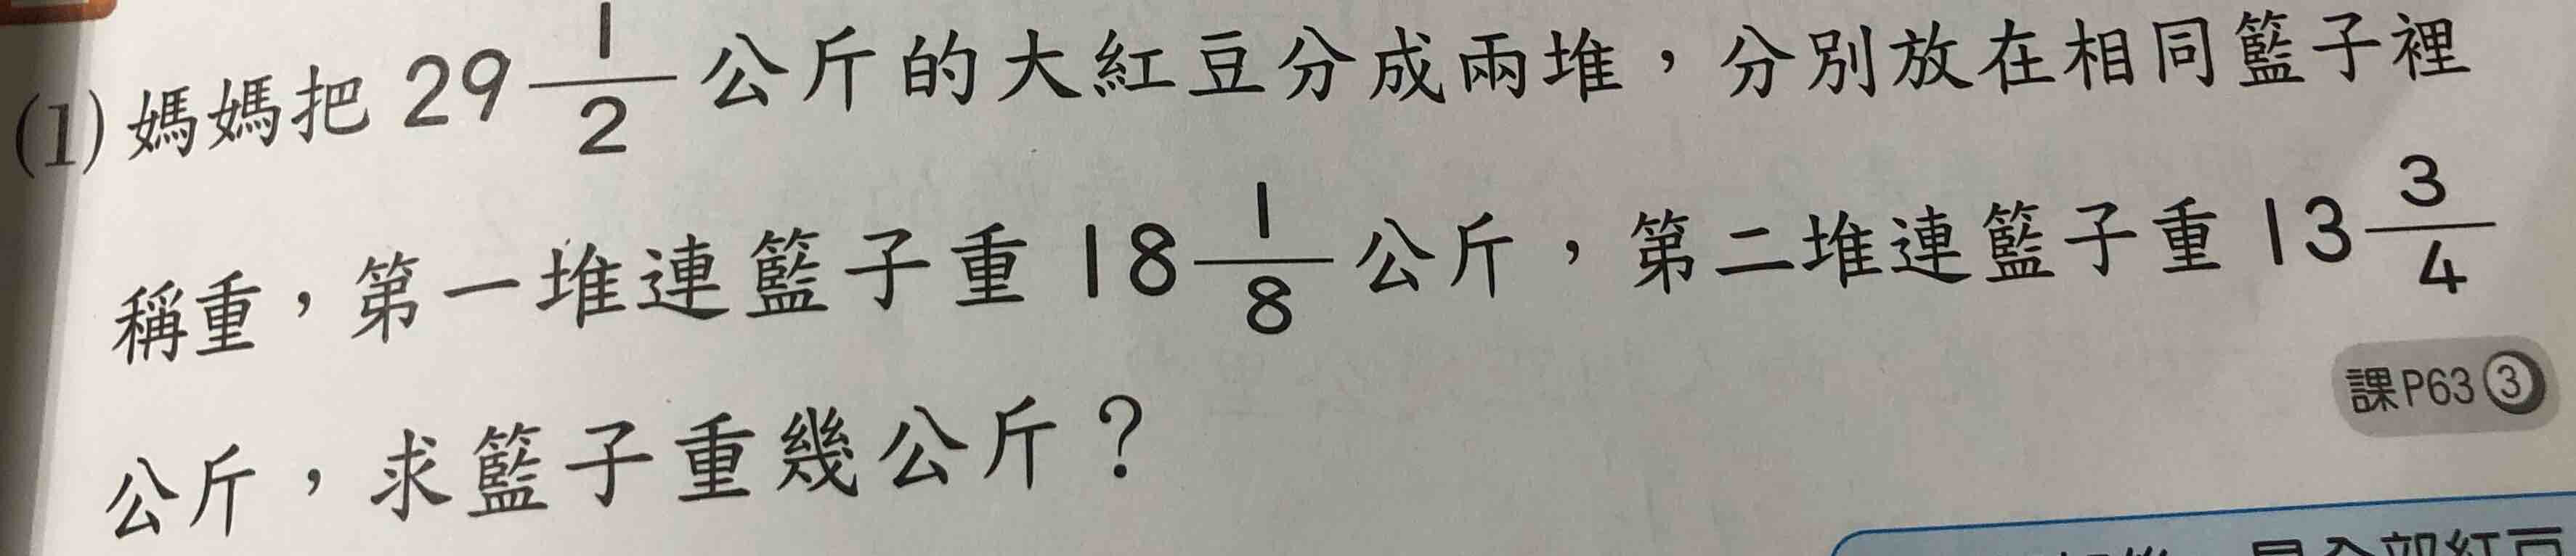 (1) 媽媽把 29 1/2 公斤的大紅豆分成兩堆，分別放在相同籃子裡
稱重，第一堆連籃子重 18 1/8 公斤，第二堆連籃子重 13 3/4
公斤，求籃子重幾公斤？
課P63③